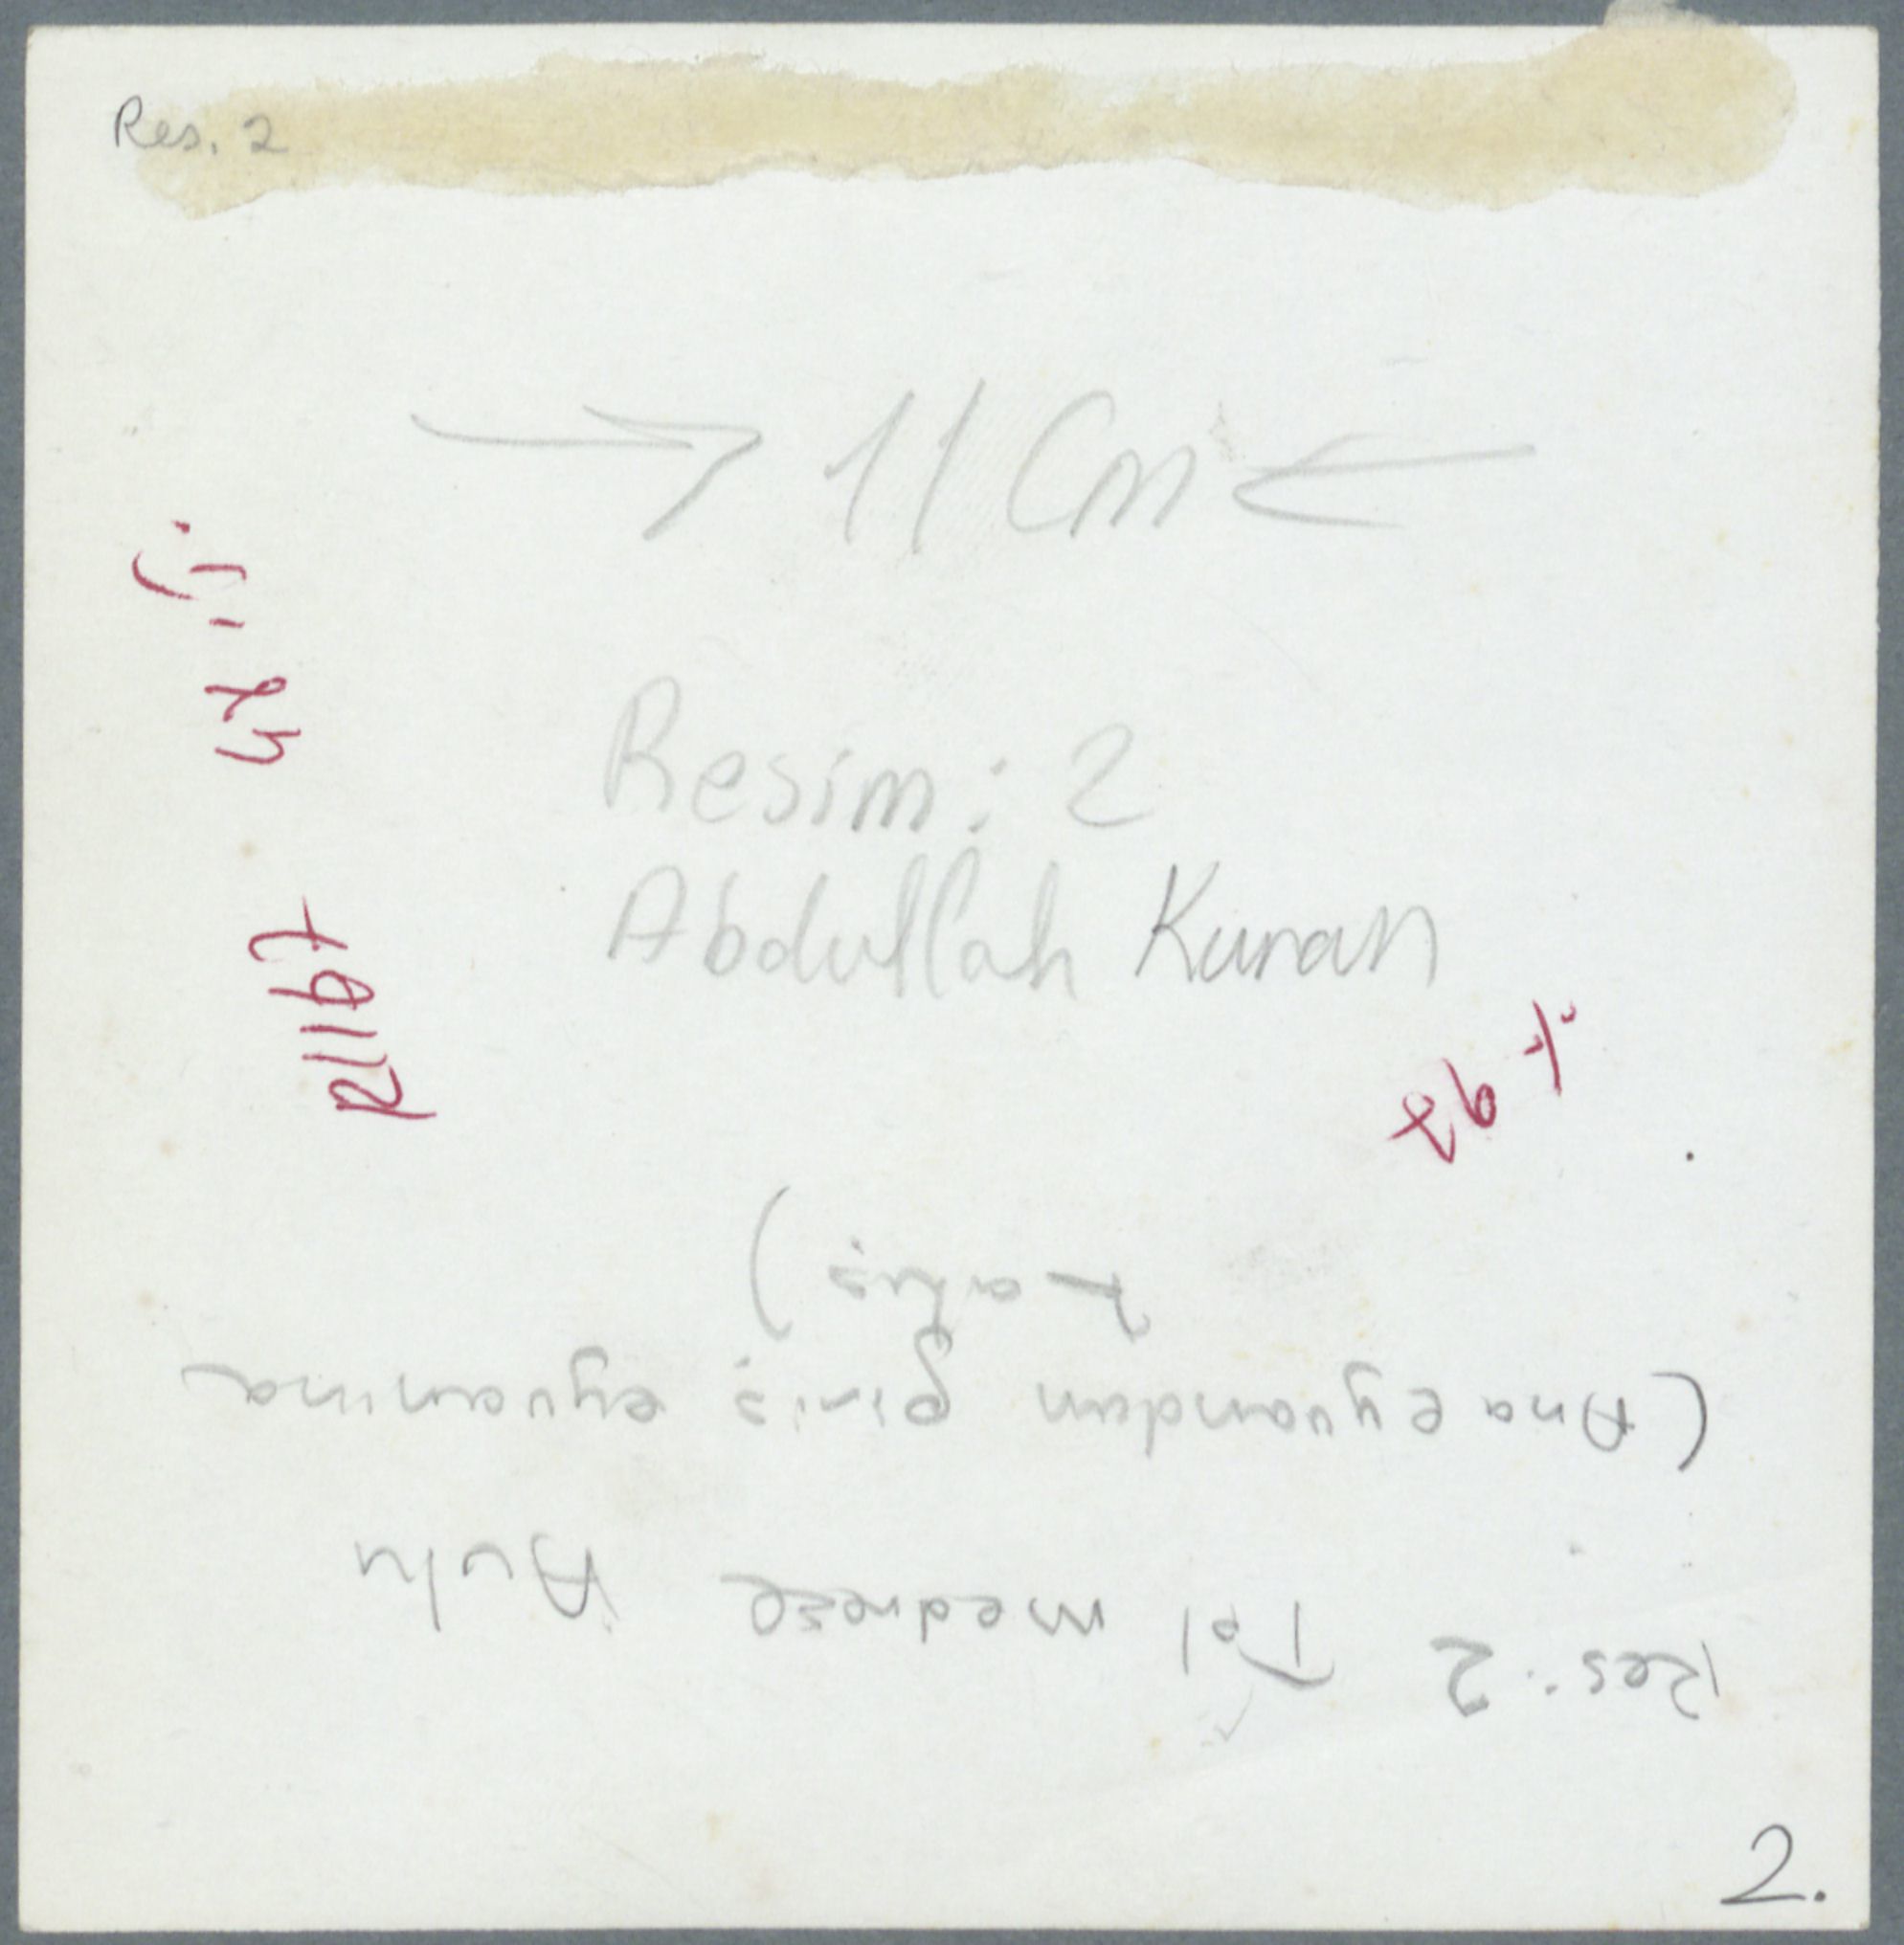 Res. 2
→ 11 Cm ←
Resim: 2
Abdullah Kuran
% 97
Res. 2 Tol medrese Avlu
(Ana eyvandan giriş eyvanına
bakış)
2.